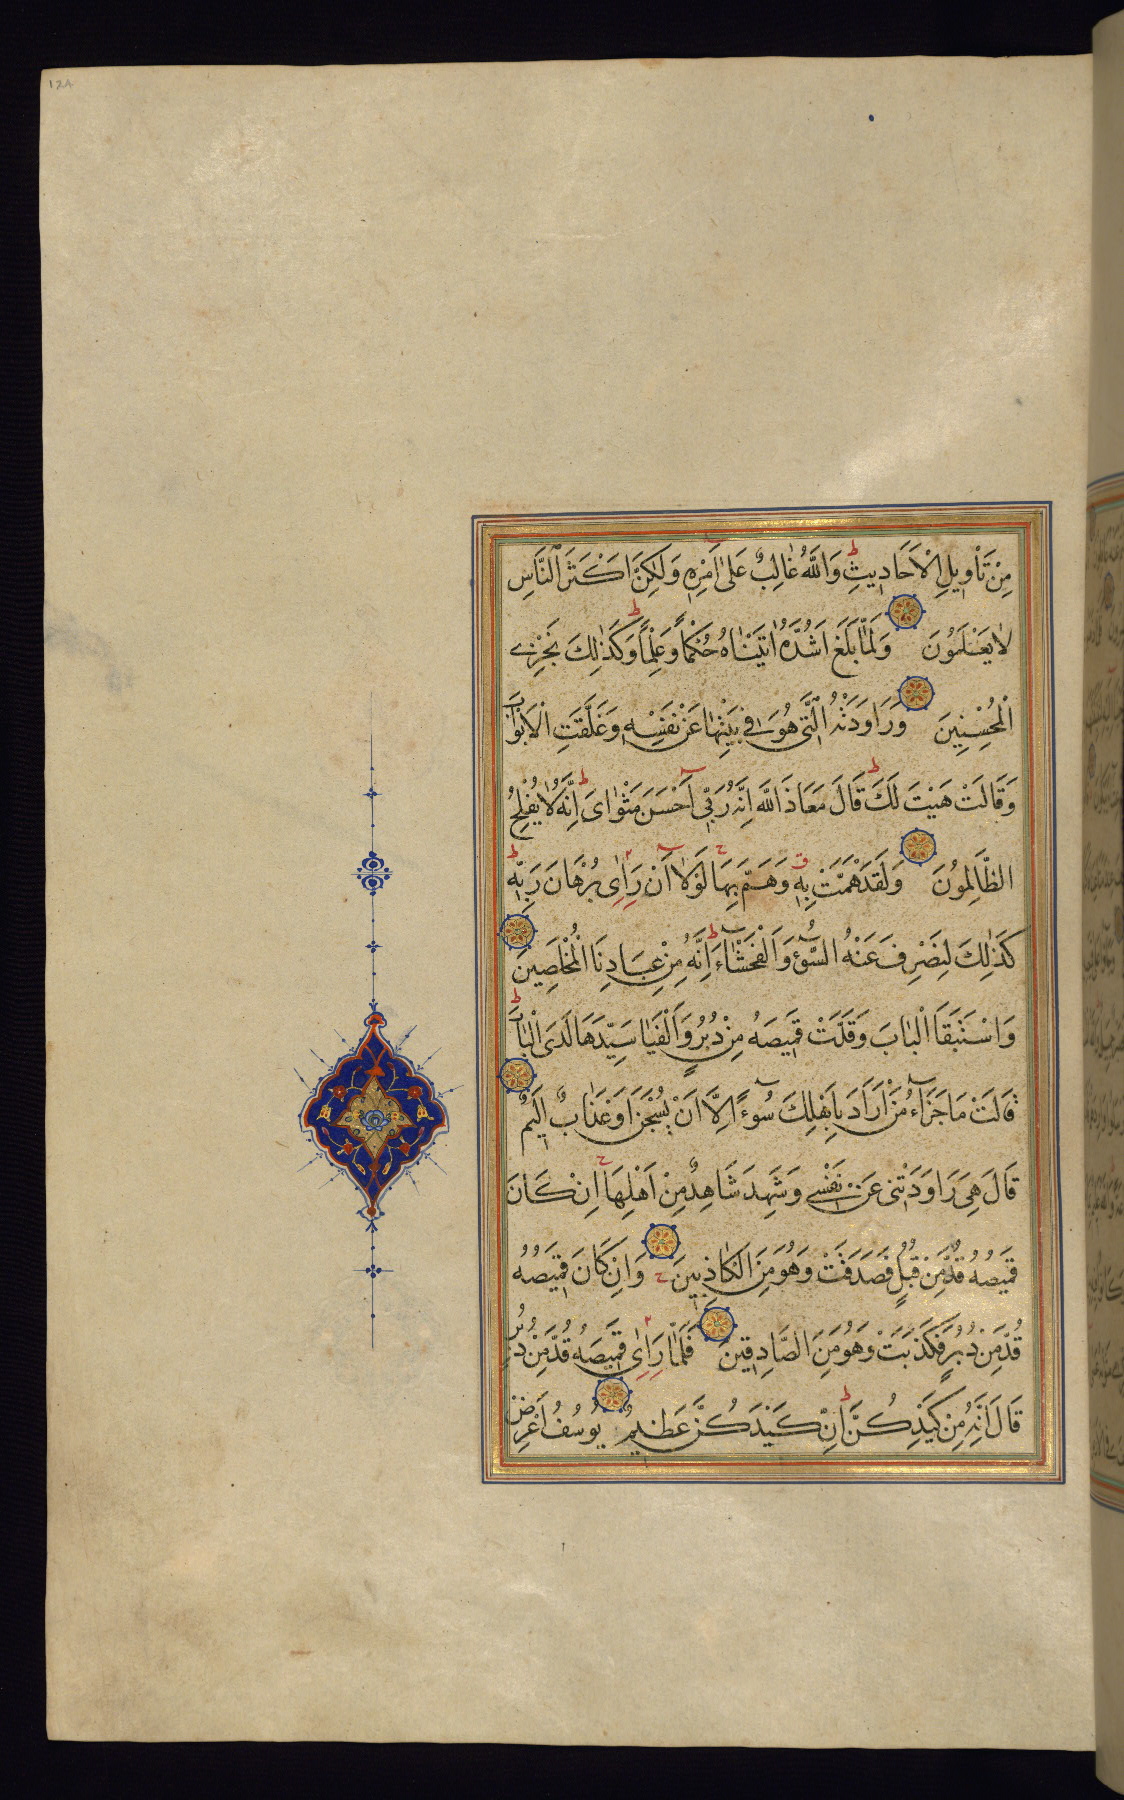 مِنْ تَأْوِيلِ الْاَحَادِيثِ وَاللّٰهُ غَالِبٌ عَلٰى اَمْرِهِ وَلٰكِنَّ اَكْثَرَ النَّاسِ
لَا يَعْلَمُونَ وَلَمَّا بَلَغَ اَشُدَّهُ اٰتَيْنَاهُ حُكْمًا وَعِلْمًا وَكَذٰلِكَ نَجْزِي
الْمُحْسِنِينَ وَرَاوَدَتْهُ الَّتِي هُوَ فِي بَيْتِهَا عَنْ نَفْسِهِ وَغَلَّقَتِ الْاَبْوَابَ
وَقَالَتْ هَيْتَ لَكَ قَالَ مَعَاذَ اللّٰهِ اِنَّهُ رَبِّي اَحْسَنَ مَثْوَايَ اِنَّهُ لَا يُفْلِحُ
الظَّالِمُونَ وَلَقَدْ هَمَّتْ بِهِ وَهَمَّ بِهَا لَوْلَا اَنْ رَاٰى بُرْهَانَ رَبِّهِ
كَذٰلِكَ لِنَصْرِفَ عَنْهُ السُّوءَ وَالْفَحْشَاءَ اِنَّهُ مِنْ عِبَادِنَا الْمُخْلَصِينَ
وَاسْتَبَقَا الْبَابَ وَقَدَّتْ قَمِيصَهُ مِنْ دُبُرٍ وَاَلْفَيَا سَيِّدَهَا لَدَى الْبَابِ
قَالَتْ مَا جَزَاءُ مَنْ اَرَادَ بِاَهْلِكَ سُوءًا اِلَّا اَنْ يُسْجَنَ اَوْ عَذَابٌ اَلِيمٌ
قَالَ هِيَ رَاوَدَتْنِي عَنْ نَفْسِي وَشَهِدَ شَاهِدٌ مِنْ اَهْلِهَا اِنْ كَانَ
قَمِيصُهُ قُدَّ مِنْ قُبُلٍ فَصَدَقَتْ وَهُوَ مِنَ الْكَاذِبِينَ وَاِنْ كَانَ قَمِيصُهُ
قُدَّ مِنْ دُبُرٍ فَكَذَبَتْ وَهُوَ مِنَ الصَّادِقِينَ فَلَمَّا رَاٰى قَمِيصَهُ قُدَّ مِنْ دُبُرٍ
قَالَ اِنَّهُ مِنْ كَيْدِكُنَّ اِنَّ كَيْدَكُنَّ عَظِيمٌ يُوسُفُ اَعْرِضْ